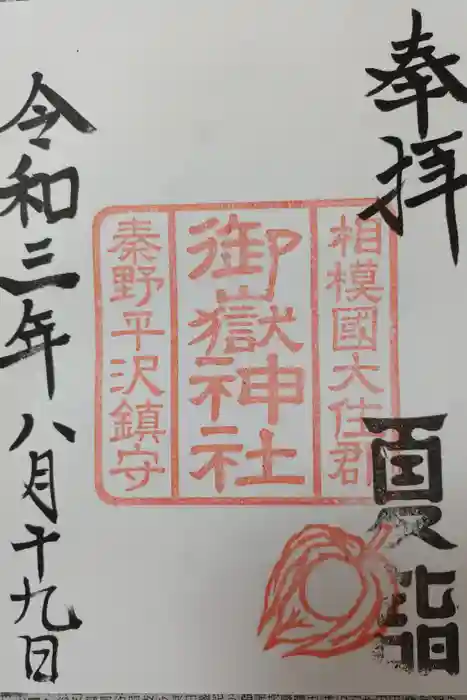 奉拝
夏詣
相模國大住郡
御嶽神社
秦野平沢鎮守
令和三年八月十九日